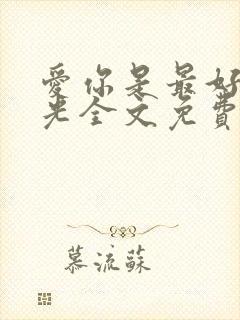 愛你是最好
光全文免費
慕流蘇